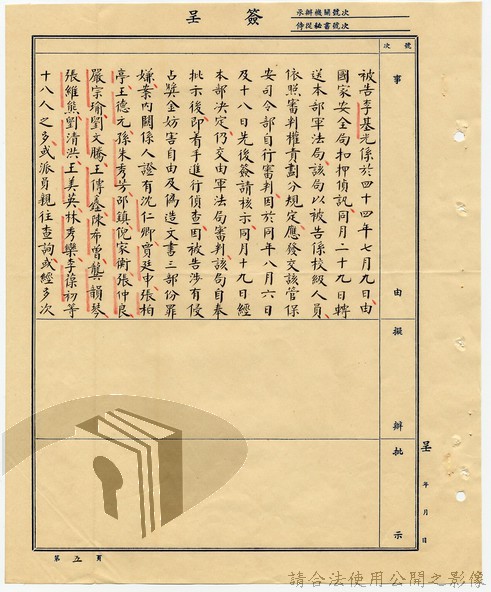 簽呈
承辦機關號次
侍從秘書號次
號次
事由
擬辦
批示
被告李基光係於四十四年七月九日、由
國家安全局扣押偵訊、同月二十九日轉
送本部軍法局、該局以被告係校級人員、
依照審判權責劃分規定、應發交該管保
安司令部自行審判、因於同年八月六日
及十八日先後簽請核示、同月十九日經
本部決定、仍交由軍法局審判、該局自奉
批示後、即着手進行偵查、因被告涉有侵
占獎金妨害自由及偽造文書三部份罪
嫌、案內關係人證有沈仁卿、賈廷申、張柏
亭、王德元、孫朱秀芳、邵鎮、倪家衡、張仲良、
嚴宗瑜、劉文騰、王傳鑫、陳希曾、龔韻琴、
張維熊、劉清洪、王美英、林秀欒、李葆初等
十八人之多、或派員親往查詢、或經多次
呈
年
月
日
第五頁
請合法使用公開之影像